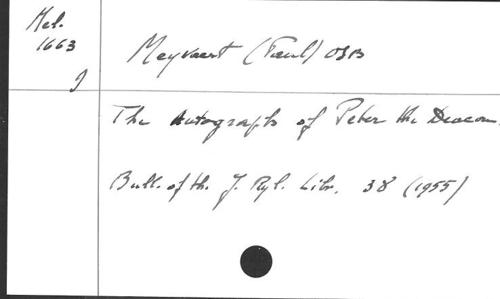 Mel.
1663
Meyvaert (Paul) OSB
The Autographs of Peter the Deacon.
Bull. of th. J. Ryl. Libr. 38 (1955)